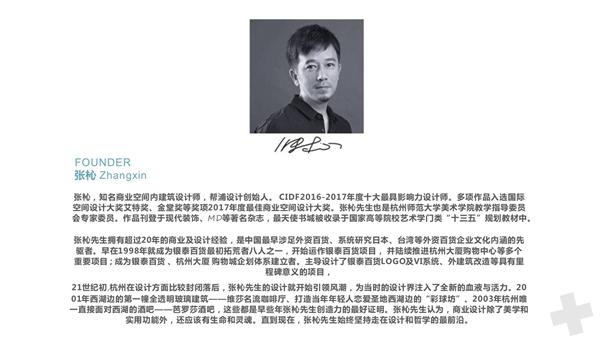 FOUNDER
张杺 Zhangxin
张杺,知名商业空间内建筑设计师,帮浦设计创始人。 CIDF2016-2017年度十大最具影响力设计师。多项作品入选国际
空间设计大奖艾特奖、金堂奖等奖项2017年度最佳商业空间设计大奖。张杺先生也是杭州师范大学美术学院教学指导委员
会专家委员。作品刊登于现代装饰、MD等著名杂志,最天使书城被收录于国家高等院校艺术学门类“十三五”规划教材中。
张杺先生拥有超过20年的商业及设计经验,是中国最早涉足外资百货、系统研究日本、台湾等外资百货企业文化内涵的先
驱者。早在1998年就成为银泰百货最初拓荒者八人之一,开始运作银泰百货项目 ,并陆续推进杭州大厦购物中心等多个
重要项目;成为银泰百货 、杭州大厦 购物城企划体系建立者。主导设计了银泰百货LOGO及VI系统、外建筑改造等具有里
程碑意义的项目,
21世纪初,杭州在设计方面比较封闭落后,张杺先生的设计就开始引领风潮,为当时的设计界注入了全新的血液与活力。20
01年西湖边的第一幢全透明玻璃建筑——维莎名流咖啡厅、打造当年年轻人恋爱圣地西湖边的“彩球坊”。2003年杭州唯
一直接面对西湖的酒吧——芭罗莎酒吧,这些都是早些年张杺先生创造力的最好证明。张杺先生认为,商业设计除了美学和
实用功能外,还应该有生命和灵魂。直到现在,张杺先生始终坚持走在设计和哲学的最前沿。